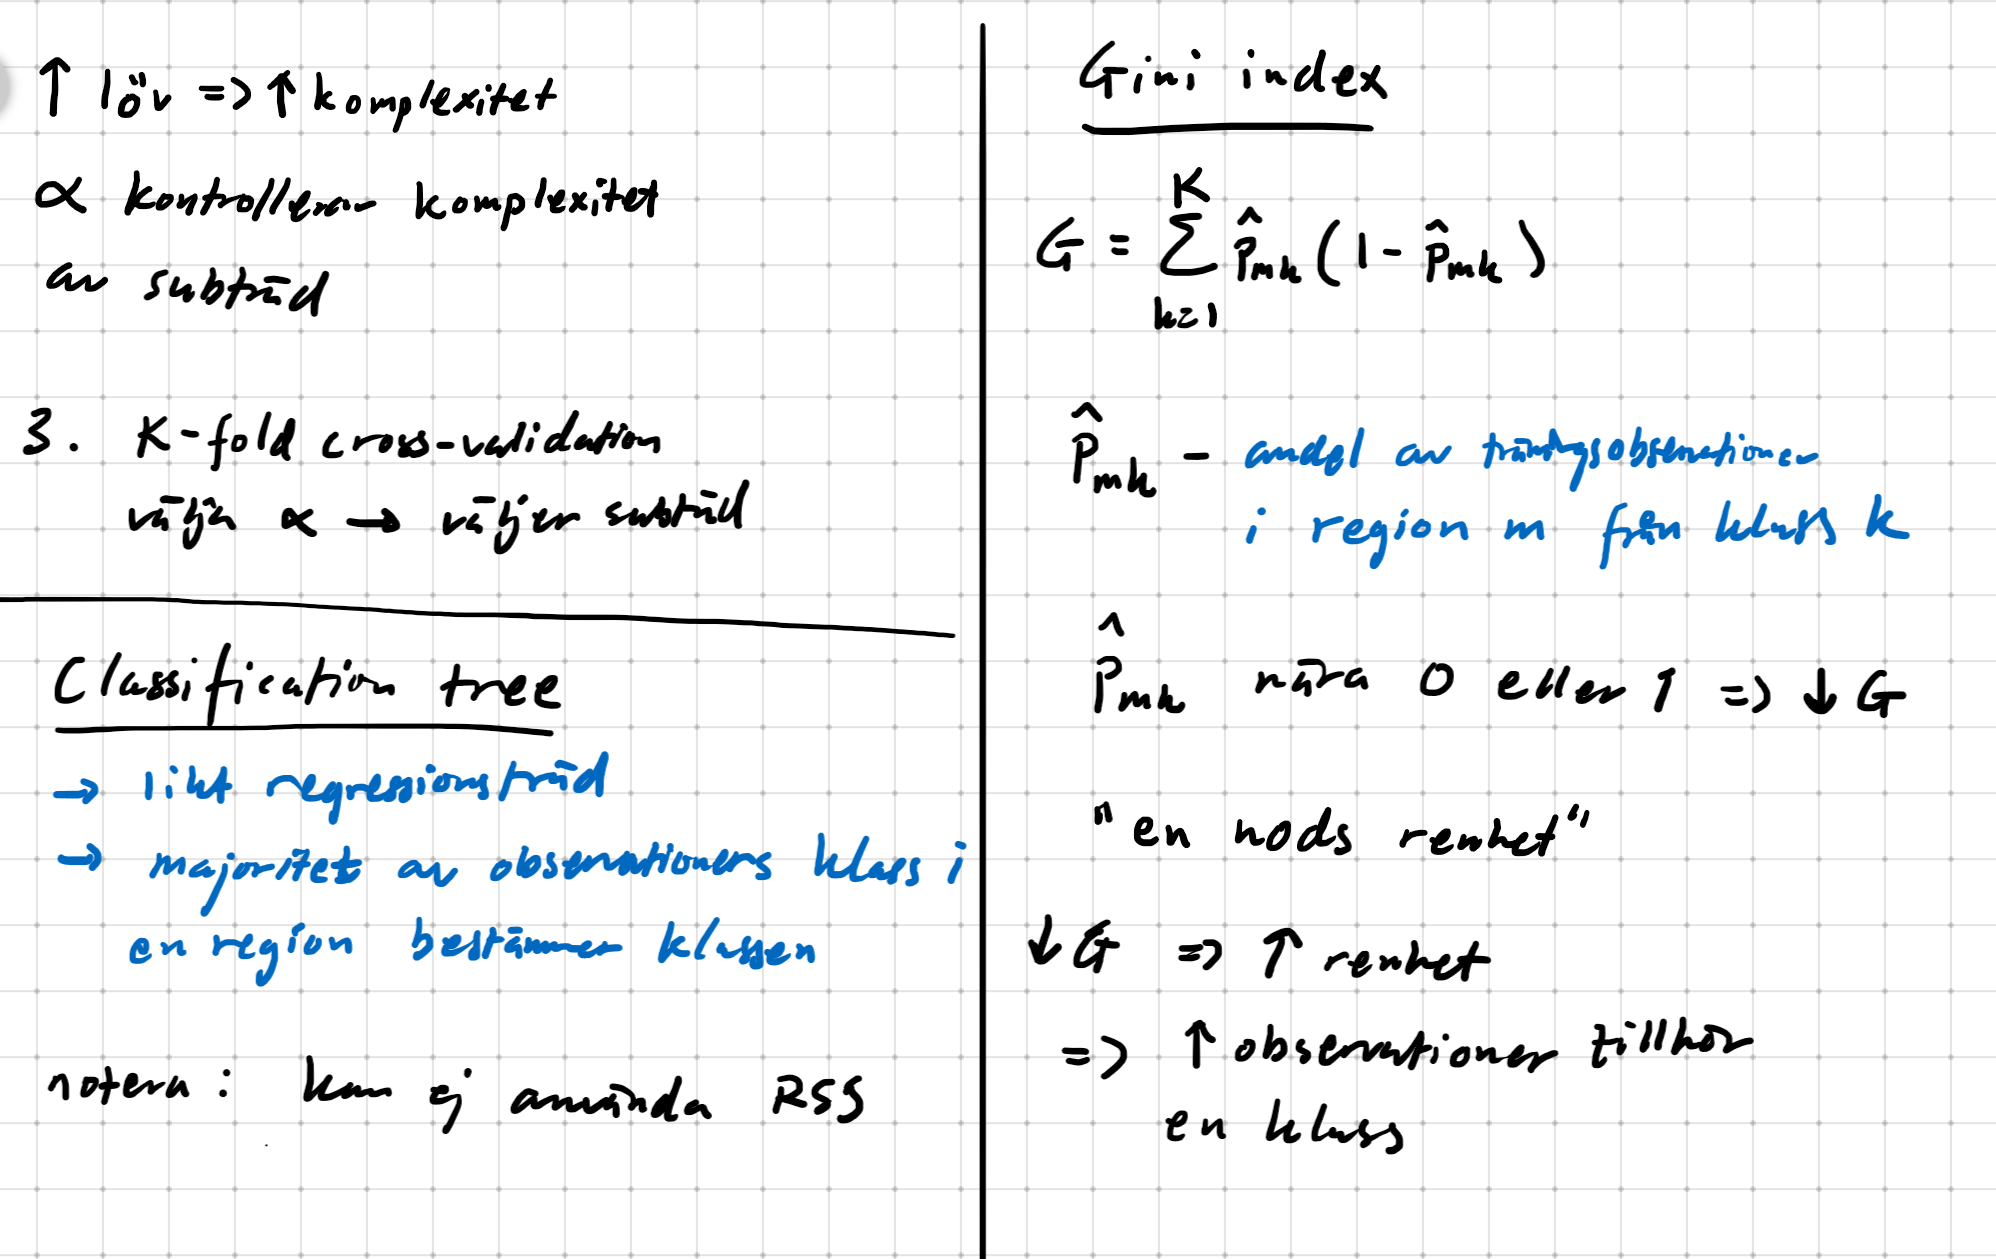 ↑ löv => ↑ komplexitet
α kontrollerar komplexitet
av subträd
3. K-fold cross-validation
välja α → väljer subträd
Classification tree
→ likt regressionsträd
→ majoritet av observationers klass i
en region bestämmer klassen
notera: kan ej använda RSS
Gini index
G = \sum_{k=1}^{K} \hat{p}_{mk} (1 - \hat{p}_{mk})
\hat{p}_{mk} - andel av träningsobservationer
i region m från klass k
\hat{p}_{mk} nära 0 eller 1 => ↓ G
"en nods renhet"
↓ G => ↑ renhet
=> ↑ observationer tillhör
en klass